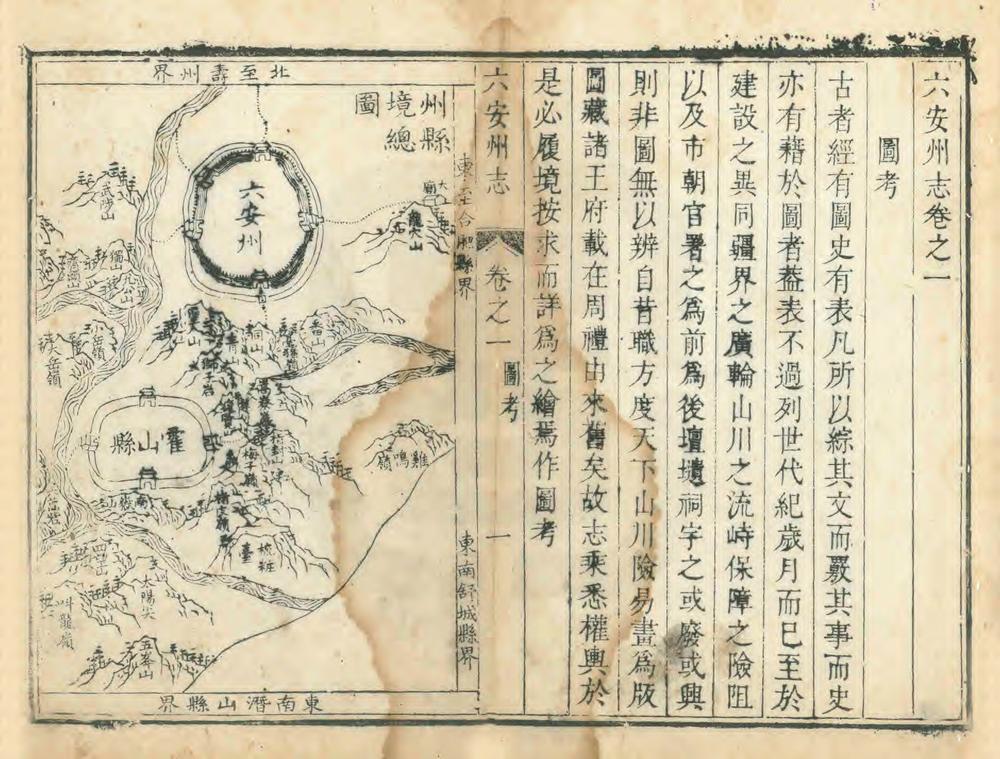 六安州志卷之一
圖考
古者經有圖史有表凡所以綜其文而覈其事而史
亦有藉於圖者蓋表不過列世代紀歲月而已至於
建設之異同疆界之廣輪山川之流峙保障之險阻
以及市朝官署之爲前爲後壇壝祠宇之或廢或興
則非圖無以辨自昔職方度天下山川險易畫爲版
圖藏諸王府載在周禮由來舊矣故志乘悉權輿於
是必履境按求而詳爲之繪焉作圖考
六安州志
卷之一
圖考
一
州縣
境總
圖
北至壽州界
東至合肥縣界
東南舒城縣界
東南潛山縣界
六安州
霍山縣
武陟山
大廟
龍穴山
獨山
小岳嶺
雞鳴嶺
梳粧臺
四望山
太陽尖
五峯山